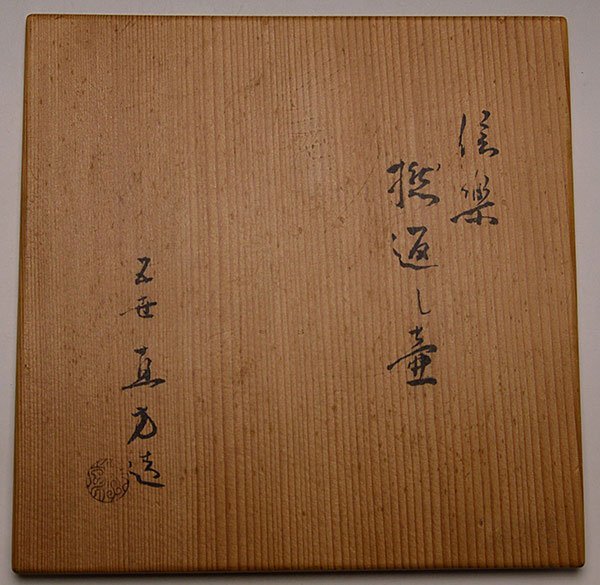 信楽
捻返し壷
五世 直方造